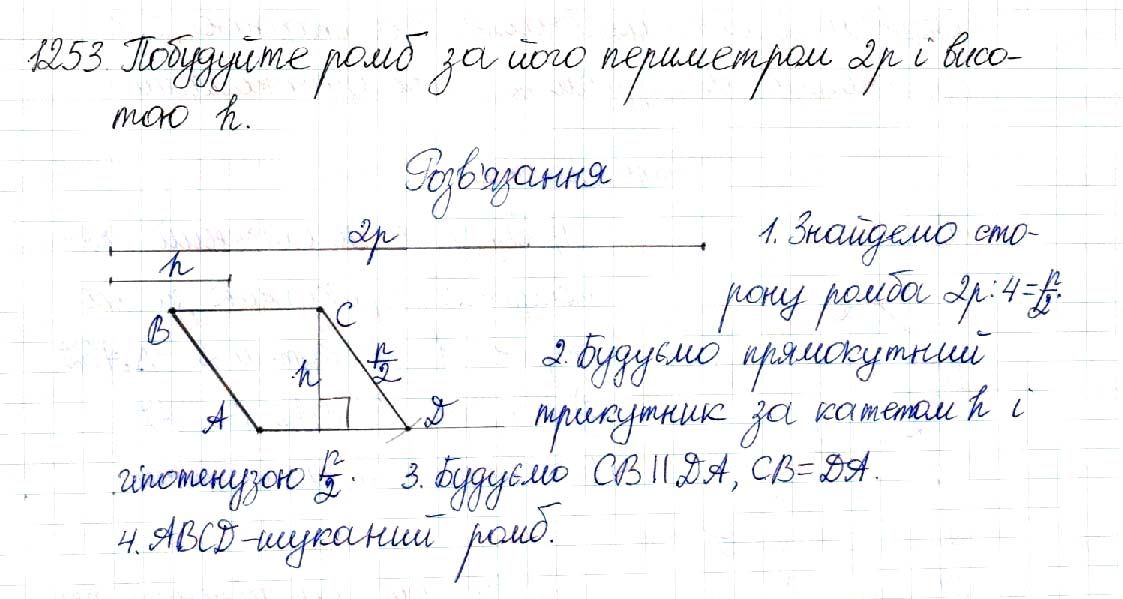 1253. Побудуйте ромб за його периметром 2p і висо-
тою h.
Розв'язання
2p
h
1. Знайдемо сто-
рону ромба 2p:4=p/2.
B
C
h
p/2
A
D
2. Будуємо прямокутний
трикутник за катетом h і
гіпотенузою p/2. 3. Будуємо CB||DA, CB=DA.
4. ABCD-шуканий ромб.